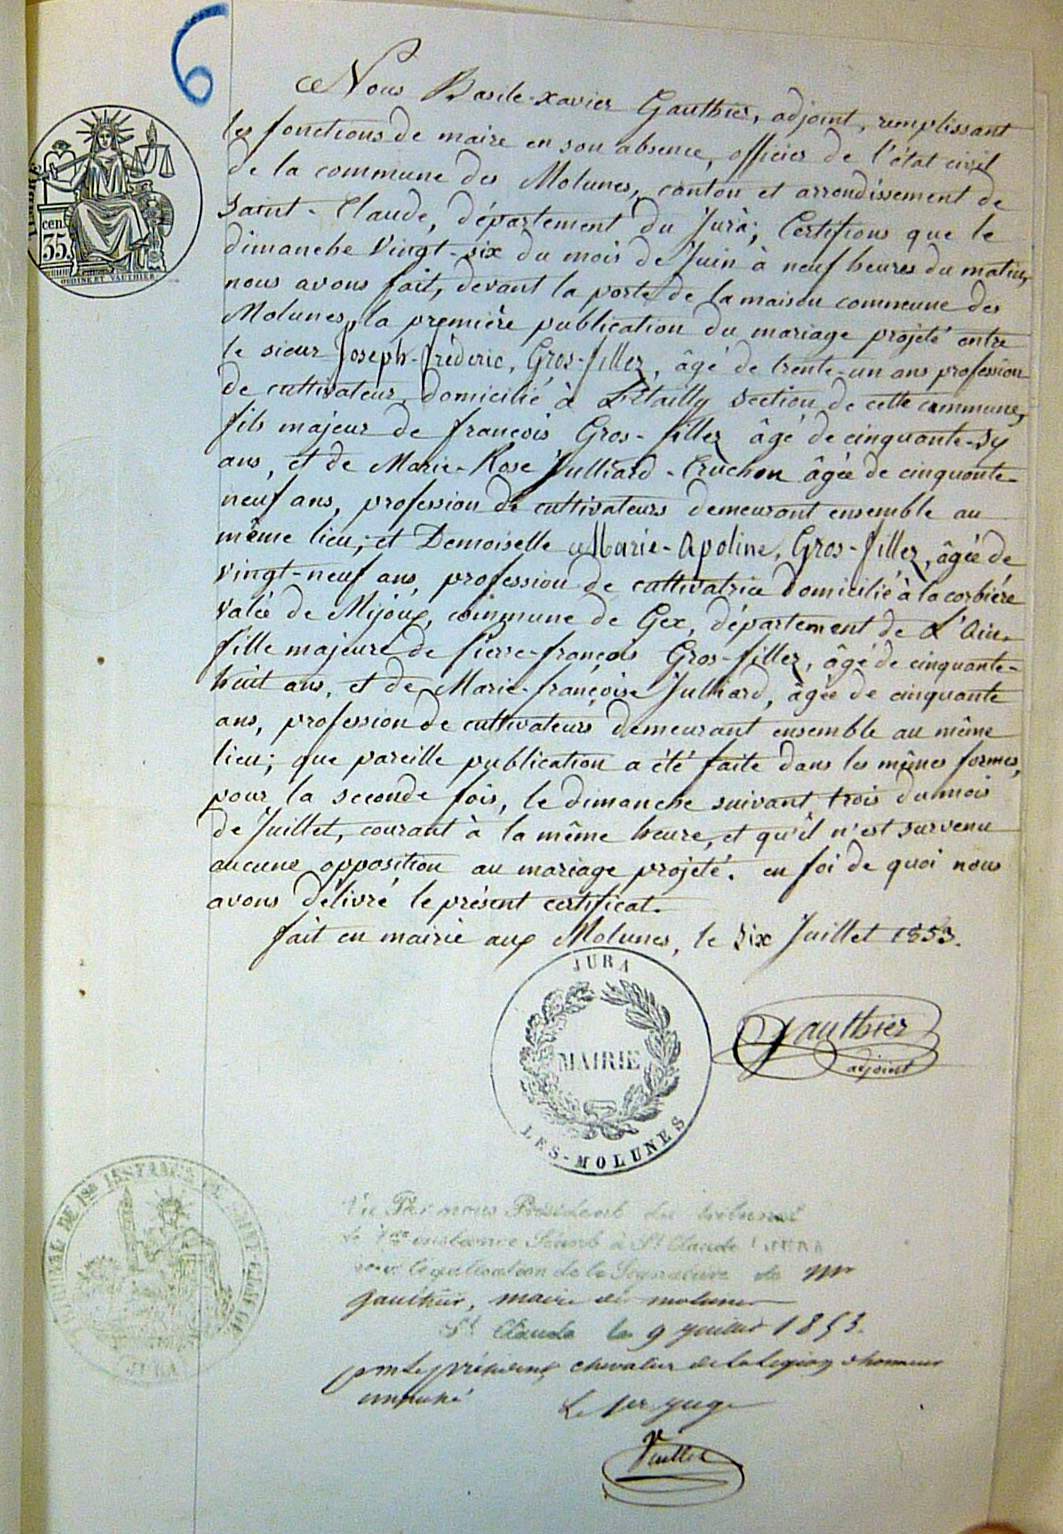 6
Nous Basile-Xavier Gauthier, adjoint, remplissant
les fonctions de maire en son absence, officier de l'état civil
de la commune des Molunes, canton et arrondissement de
Saint-Claude, département du Jura; Certifions que le
dimanche vingt-six du mois de Juin à neuf heures du matin,
nous avons fait, devant la porte de la maison commune des
Molunes, la première publication du mariage projeté entre
le sieur Joseph-fréderic, Gros-fillez, âgé de trente-un ans profession
de cultivateur, domicilié à L'Etailly section de cette commune,
fils majeur de françois Gros-fillez âgé de cinquante-sy
ans, et de Marie-Rose Julliard-Truchon âgée de cinquante-
neuf ans, profession de cultivateurs demeurant ensemble au
même lieu; et Demoiselle Marie-Apoline, Gros-fillez, âgée de
vingt-neuf ans, profession de cultivatrice domicilié à la corbière
valée de Mijoux, commune de Gex, département de L'Ain.
fille majeure de Pierre-françois Gros-fillez, âgé de cinquante-
huit ans, et de Marie-françoise Julliard, âgée de cinquante
ans, profession de cultivateurs demeurant ensemble au même
lieu; que pareille publication a été faite dans les mêmes formes,
pour la seconde fois, le dimanche suivant trois du mois
de Juillet, courant à la même heure, et qu'il n'est survenu
aucune opposition au mariage projeté. en foi de quoi nous
avons délivré le présent certificat.
fait en mairie aux Molunes, le six Juillet 1853.
35
JURA
MAIRIE
LES-MOLUNES
Gauthier
adjoint
TRIBUNAL DE 1ère INSTANCE DE SAINT-CLAUDE
JURA
Vu Par nous Président du tribunal
de 1ère instance Séant à St Claude (JURA
pour légalisation de la Signature de Mr
Gauthier, maire des molunes
St Claude le 9 juillet 1853.
pour Le président, chevalier de la légion d'honneur
empeché
Le 1er juge